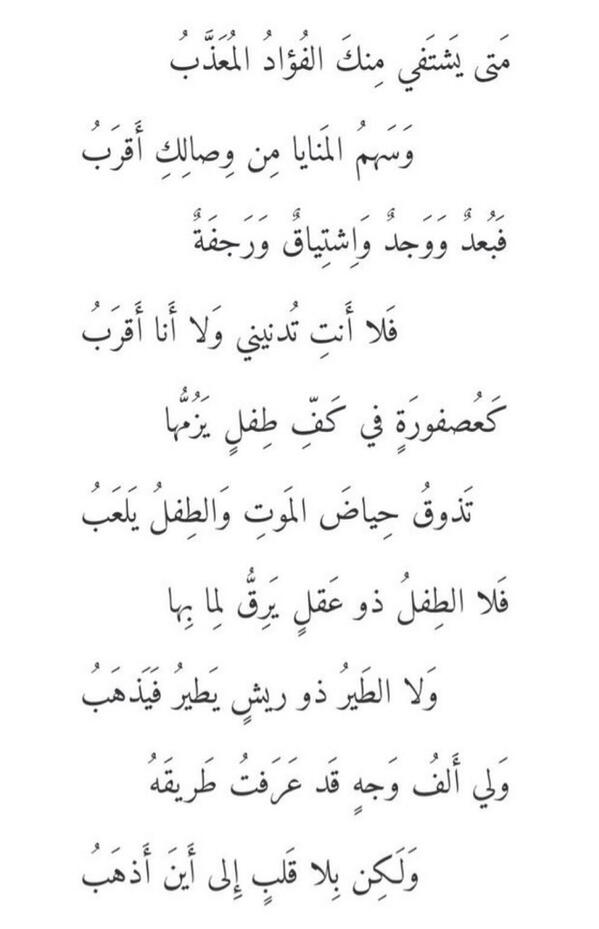 مَتى يَشتَفي مِنكَ الفُؤادُ المُعَذَّبُ
وَسَهمُ المَنايا مِن وِصالِكِ أَقرَبُ
فَبُعدٌ وَوَجدٌ وَاِشتِياقٌ وَرَجفَةٌ
فَلا أَنتِ تُدنيني وَلا أَنا أَقرَبُ
كَعُصفورَةٍ في كَفِّ طِفلٍ يَزُمُّها
تَذوقُ حِياضَ المَوتِ وَالطِفلُ يَلعَبُ
فَلا الطِفلُ ذو عَقلٍ يَرِقُّ لِما بِها
وَلا الطَيرُ ذو ريشٍ يَطيرُ فَيَذهَبُ
وَلي أَلفُ وَجهٍ قَد عَرَفتُ طَريقَهُ
وَلَكِن بِلا قَلبٍ إِلى أَينَ أَذهَبُ